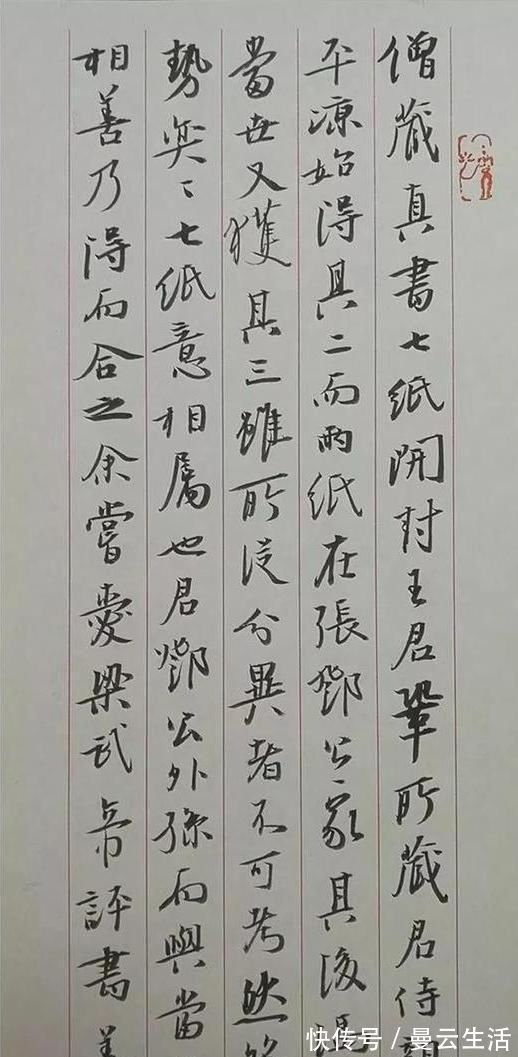 僧藏真書七紙開封王君鞏所藏君侍
平涼始得其二而兩紙在張鄧公家其後
當世又獲其三雖所從分異者不可考然
勢奕〻七紙意相屬也君鄧公外孫而與當
相善乃得而合之余嘗愛梁武帝評書善
快传号／曼云生活